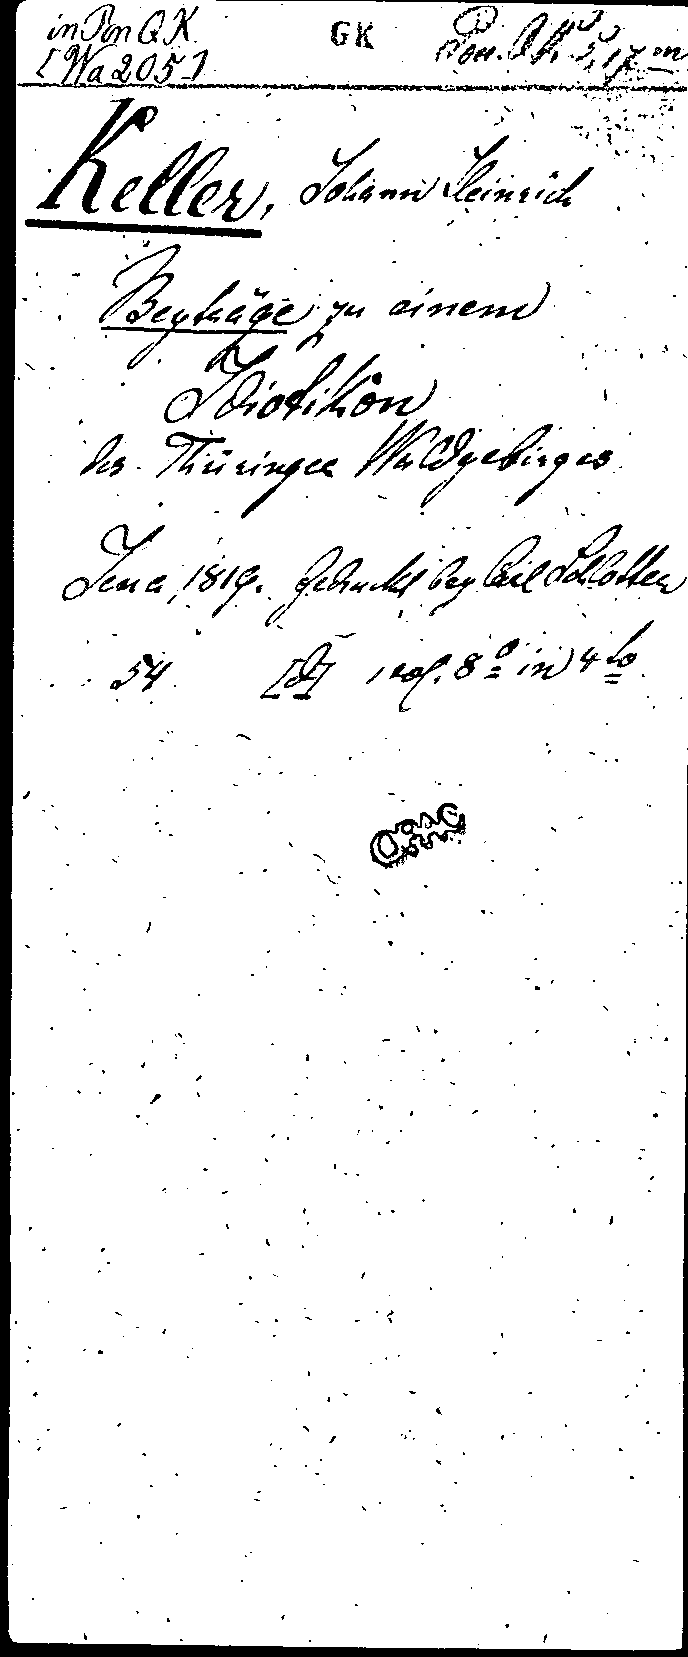 in Pon Q K GK Pon. Qk. 5, 17 m
[Wa 205]
Keller, Johann Heinrich
Beyträge zu einem
Idiotikon
des Thüringer Waldgebirges
Jena, 1819. Gedruckt bey Carl Schlotter
54 1 vol. 8º in 4to